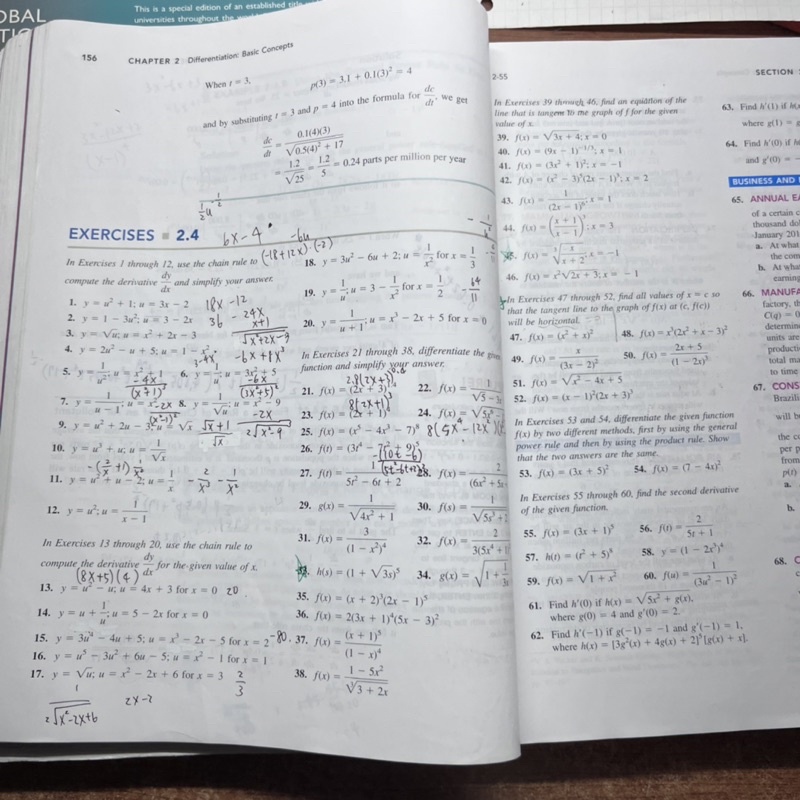 OBAL
This is a special edition of an established
universities throughout the
156 CHAPTER 2 Differentiation: Basic Concepts
When t = 3,
p(3) = 3.1 + 0.1(3)² = 4
and by substituting t = 3 and p = 4 into the formula for dc/dt, we get
dc/dt = 0.1(4)(3)/√(0.5(4)² + 17)
= 1.2/√25 = 1.2/5 = 0.24 parts per million per year
EXERCISES ■ 2.4
6x-4
-6u
(-18+12x)·(-2)
In Exercises 1 through 12, use the chain rule to
compute the derivative dy/dx and simplify your answer.
1. y = u² + 1; u = 3x − 2 18x-12
2. y = 1 − 3u²; u = 3 − 2x 36 -24x
3. y = √u; u = x² + 2x − 3 x+1/√x²+2x-3
4. y = 2u² − u + 5; u = 1 − x²
5. y = 1/u²; u = x² + 1 -4x
6. y = 1/u; u = 3x² + 5 -6x/(3x²+5)²
7. y = 1/(u − 1); u = x² -2x/(x²-1)²
8. y = 1/√u; u = x² − 9
9. y = u² + 2u − 3; u = √x √x+1/√x
-2x/2√x²-9
10. y = u³ + u; u = 1/√x
11. y = u² + u − 2; u = 1/x -2/x³ -1/x²
12. y = u²; u = 1/(x − 1)
In Exercises 13 through 20, use the chain rule to
compute the derivative dy/dx for the given value of x.
(8x+5)(4)
13. y = u² − u; u = 4x + 3 for x = 0 20
14. y = u + 1/u; u = 5 − 2x for x = 0
15. y = 3u⁴ − 4u + 5; u = x³ − 2x − 5 for x = 2 -80.
16. y = u⁵ − 3u² + 6u − 5; u = x² − 1 for x = 1
17. y = √u; u = x² − 2x + 6 for x = 3 2/3
1/2√x²-2x+6 2x-2
18. y = 3u² − 6u + 2; u = 1/x² for x = 1/3
19. y = 1/u; u = 3 − 1/x² for x = 1/2
20. y = 1/(u + 1); u = x³ − 2x + 5 for x = 0
In Exercises 21 through 38, differentiate the
function and simplify your answer.
21. f(x) = (2x + 3)
22. f(x) = 1/√5
23. f(x) = (2x + 1)⁴
24. f(x) = √5
25. f(x) = (x⁵ − 4x³ − 7)⁸
26. f(t) = (3t⁴ − 7t² + 9)⁵
-(10t-6)
27. f(t) = 1/(5t² − 6t + 2)
28. f(x) = 2/(6x² + 5x
29. g(x) = 1/√(4x² + 1)
30. f(s) = 1/√5s³ + 2
31. f(x) = 3/(1 − x²)⁴
32. f(x) = 2/3(5x⁴ + 1)
33. h(s) = (1 + √3s)⁵
34. g(x) = √1 + 1/3
35. f(x) = (x + 2)³(2x − 1)⁵
36. f(x) = 2(3x + 1)⁴(5x − 3)²
37. f(x) = (x + 1)⁵/(1 − x)⁴
38. f(x) = (1 − 5x²)/∛(3 + 2x)
2-55 SECTION
In Exercises 39 through 46, find an equation of the
line that is tangent to the graph of f for the given
value of x.
39. f(x) = √(3x + 4); x = 0
40. f(x) = (9x − 1)^(−1/3); x = 1
41. f(x) = (3x² + 1)²; x = −1
42. f(x) = (x² − 3)⁵(2x − 1)³; x = 2
43. f(x) = 1/(2x − 1)⁶; x = 1
44. f(x) = ((x + 1)/(x − 1))³; x = 3
45. f(x) = ∛(x/(x + 2)); x = −1
46. f(x) = x²√(2x + 3); x = −1
In Exercises 47 through 52, find all values of x = c so
that the tangent line to the graph of f(x) at (c, f(c))
will be horizontal.
47. f(x) = (x² + x)²
48. f(x) = x³(2x² + x − 3)²
49. f(x) = x/(3x − 2)²
50. f(x) = (2x + 5)/(1 − 2x)³
51. f(x) = √(x² − 4x + 5)
52. f(x) = (x − 1)²(2x + 3)³
In Exercises 53 and 54, differentiate the given function
f(x) by two different methods, first by using the general
power rule and then by using the product rule. Show
that the two answers are the same.
53. f(x) = (3x + 5)²
54. f(x) = (7 − 4x)²
In Exercises 55 through 60, find the second derivative
of the given function.
55. f(x) = (3x + 1)⁵
56. f(t) = 2/(5t + 1)
57. h(t) = (t² + 5)⁸
58. y = (1 − 2x³)⁴
59. f(x) = √(1 + x²)
60. f(u) = 1/(3u² − 1)²
61. Find h′(0) if h(x) = √(5x² + g(x)),
where g(0) = 4 and g′(0) = 2.
62. Find h′(−1) if g(−1) = −1 and g′(−1) = 1,
where h(x) = [3g²(x) + 4g(x) + 2]⁵[g(x) + x].
63. Find h′(1) if h(
where g(1) =
64. Find h′(0) if h(
and g′(0) =
BUSINESS AND
65. ANNUAL EA
of a certain c
thousand dol
January 201
a. At what
the com
b. At what
earning
66. MANUFA
factory, th
C(q) = 0
determin
units are
producti
total ma
to time
67. CONS
Brazili
will b
the co
per p
from
p(t)
a.
b.
68. C